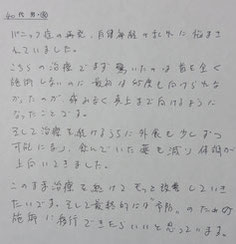 30代 男・
パニック症の再発、自律神経の乱れに悩まさ
れていました。
こちらの治療でまず驚いたのは首を全く
施術しないのに最初は45度も向けられな
かったのが痛みなく真上まで向けるように
なったことです。
そして治療を続けるうちに外食も少しずつ
可能になり、飲んでいた薬も減り体調が
上向いてきました。
このまま治療を続けてもっと改善していき
たいです。そして最終的には“予防”のための
施術に移行できたらいいと思っています。